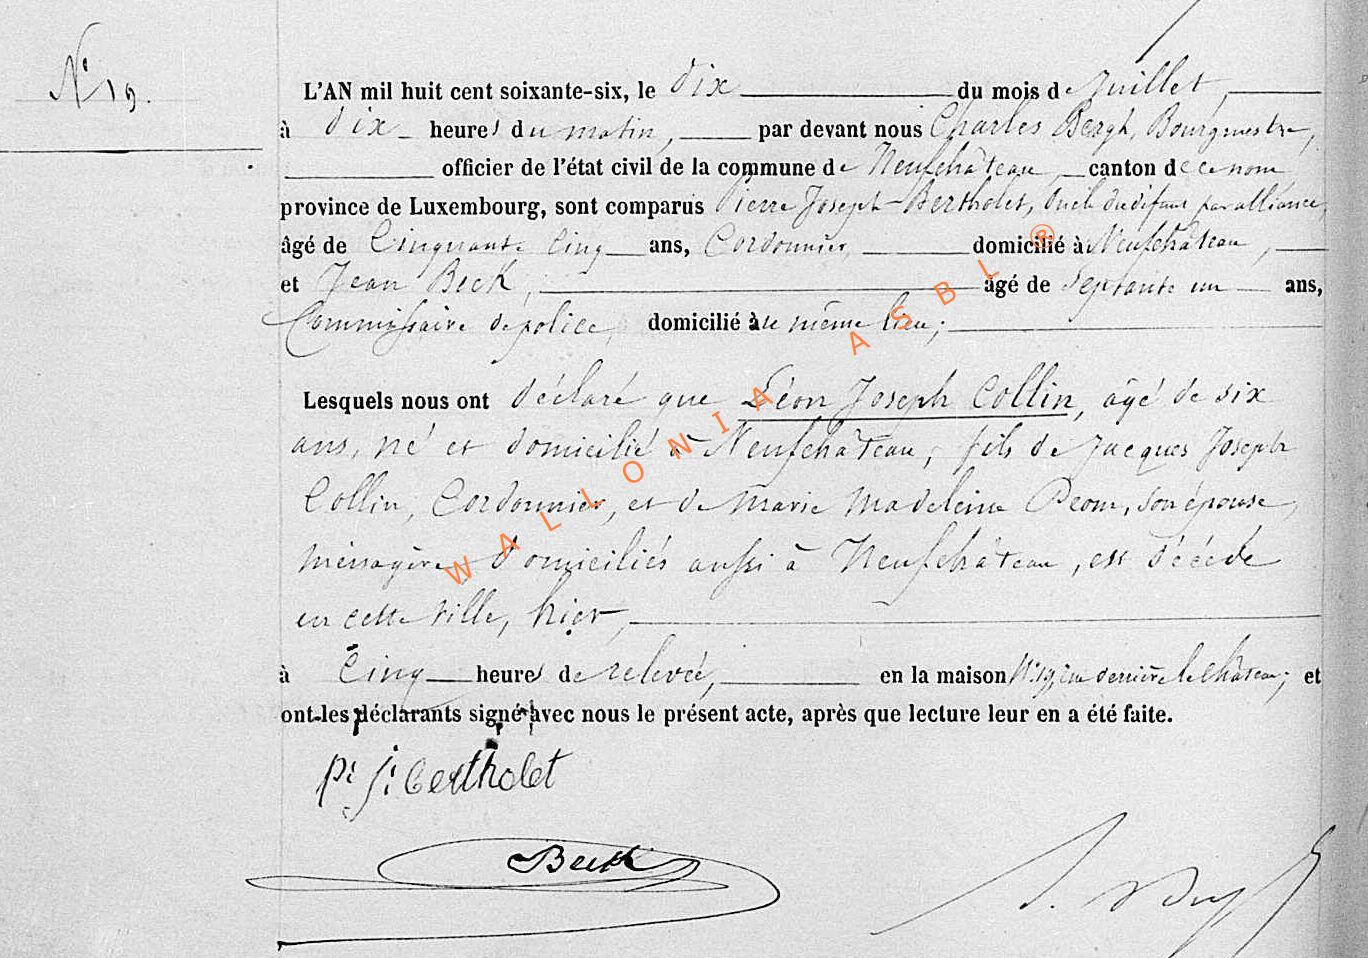 N° 19.
L'AN mil huit cent soixante-six, le dix du mois de Juillet,
à dix heures du matin, par devant nous Charles Bergh, Bourgmestre,
officier de l'état civil de la commune de Neufchâteau, canton de ce nom
province de Luxembourg, sont comparus Pierre Joseph Bertholet, oncle du défunt par alliance,
âgé de Cinquante cinq ans, Cordonnier, domicilié à Neufchâteau,
et Jean Beck, âgé de septante un ans,
Commissaire de police, domicilié au même lieu;
Lesquels nous ont déclaré que Léon Joseph Collin, âgé de six
ans, né et domicilié à Neufchâteau, fils de Jacques Joseph
Collin, Cordonnier, et de Marie Madeleine son épouse,
ménagère domiciliés aussi à Neufchâteau, est décédé
en cette ville, hier,
à Cinq heures de relevée, en la maison N° 19, derrière le Château; et
ont les déclarants signé avec nous le présent acte, après que lecture leur en a été faite.
P. J. Bertholet
Beck
WALLONIA ASBL ®